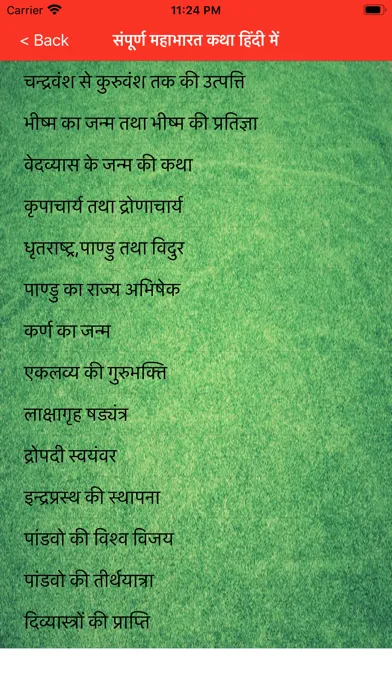 Carrier 11:24 PM
< Back संपूर्ण महाभारत कथा हिंदी में
चन्द्रवंश से कुरुवंश तक की उत्पत्ति
भीष्म का जन्म तथा भीष्म की प्रतिज्ञा
वेदव्यास के जन्म की कथा
कृपाचार्य तथा द्रोणाचार्य
धृतराष्ट्र,पाण्डु तथा विदुर
पाण्डु का राज्य अभिषेक
कर्ण का जन्म
एकलव्य की गुरुभक्ति
लाक्षागृह षड्यंत्र
द्रोपदी स्वयंवर
इन्द्रप्रस्थ की स्थापना
पांडवो की विश्व विजय
पांडवो की तीर्थयात्रा
दिव्यास्त्रों की प्राप्ति